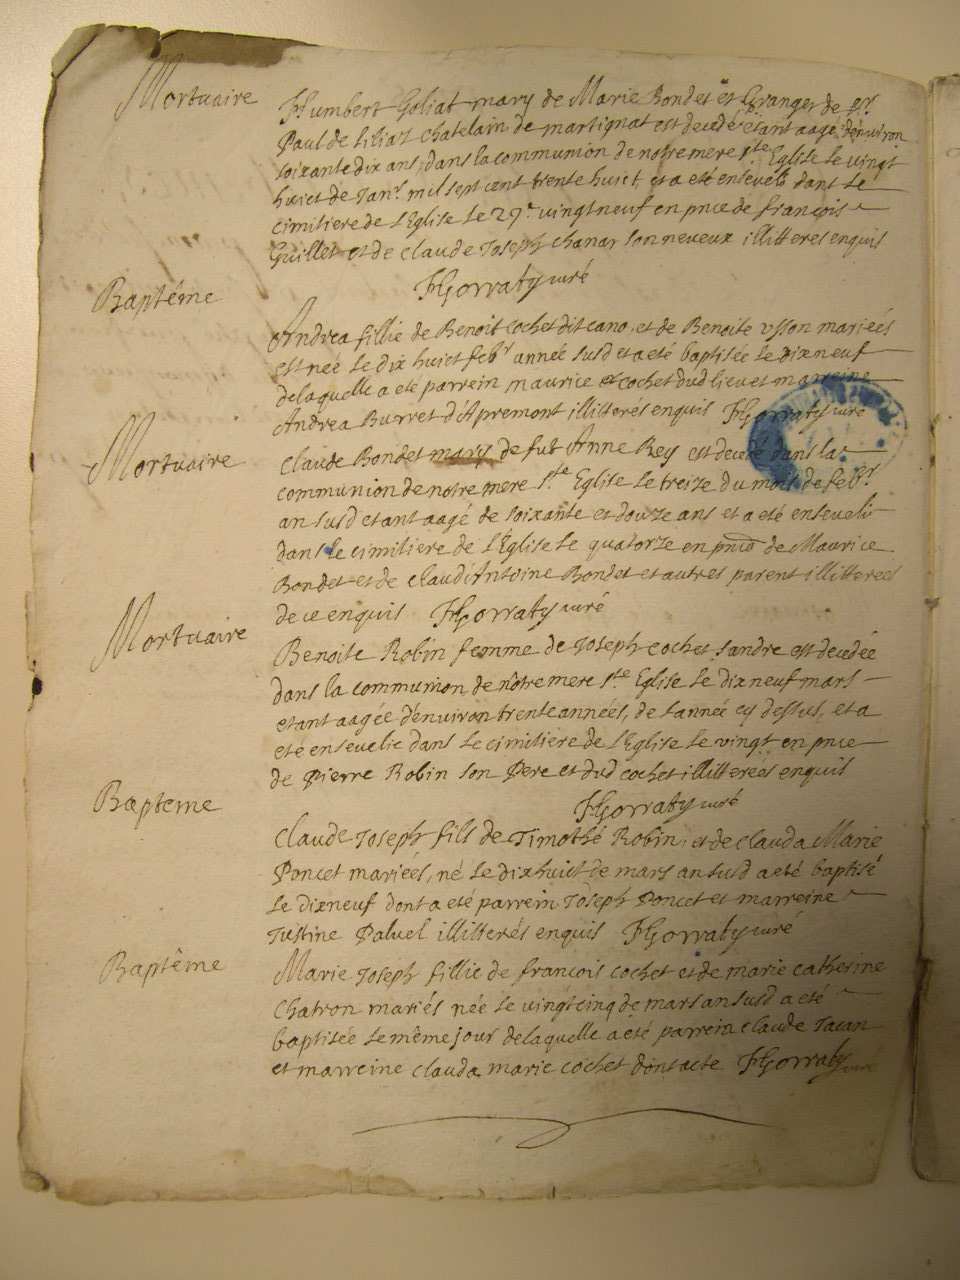 Mortuaire
Humbert Goliat mary de Marie Bondet et Granger de sr.
Paul de Liliaz chatelain de martignat est decedé etant aagé d'énviron
soixante dix ans, dans la communion de notre mere ste. Eglise le vingt
huict de Janr. mil sept cent trente huict, et a eté enseveli dans le
cimitiere de l'Eglise le 29e. vingt neuf en pnce de françois
Guillet et de claude Joseph chanar son neveux illitteres enquis
HGorraty curé
Baptéme
Andrea fillie de Benoit cochet dit cano, et de Benoite usson mariéés
est néé le dix huict febr. année susd et a eté baptisée le dixneuf
de laquelle a eté parrein maurice cochet dud lieu et marreine
Andrea Burret d'Apremont illitterés enquis HGorraty curé
Mortuaire
Claude Bondet mary de fut Anne Rey est decedé dans la
communion de notre mere ste. Eglise le treize du mois de febr.
an susd etant aagé de soixante et douze ans et a eté enseveli
dans le cimitiere de l'Eglise le quatorze en pnce de Maurice
Bondet et de claud'Antoine Bondet et autres parent illitterés
de ce enquis HGorraty curé
Mortuaire
Benoite Robin femme de Joseph cochet sandre est decedée
dans la communion de nôtre mere ste. Eglise le dixneuf mars
etant aagée d'énviron trente annéés, de l'année cy dessus, et a
eté ensevelie dans le cimitiere de l'Eglise le vingt en pnce
de Pierre Robin son Pere et dud cochet illitterés enquis
HGorraty curé
Bapteme
Claude Joseph fils de Timothé Robin, et de clauda Marie
Poncet mariéés, né le dixhuict de mars an susd a eté baptisé
le dixneuf dont a eté parrein Joseph Poncet et marreine
Justine Paluel illitterés enquis HGorraty curé
Baptême
Marie Joseph fillie de françois cochet et de marie catherine
Chatron mariés née le vingt cinq de mars an susd a eté
baptisée le même jour de laquelle a eté parrein claude Tavan
et marreine clauda marie cochet dont acte HGorraty curé